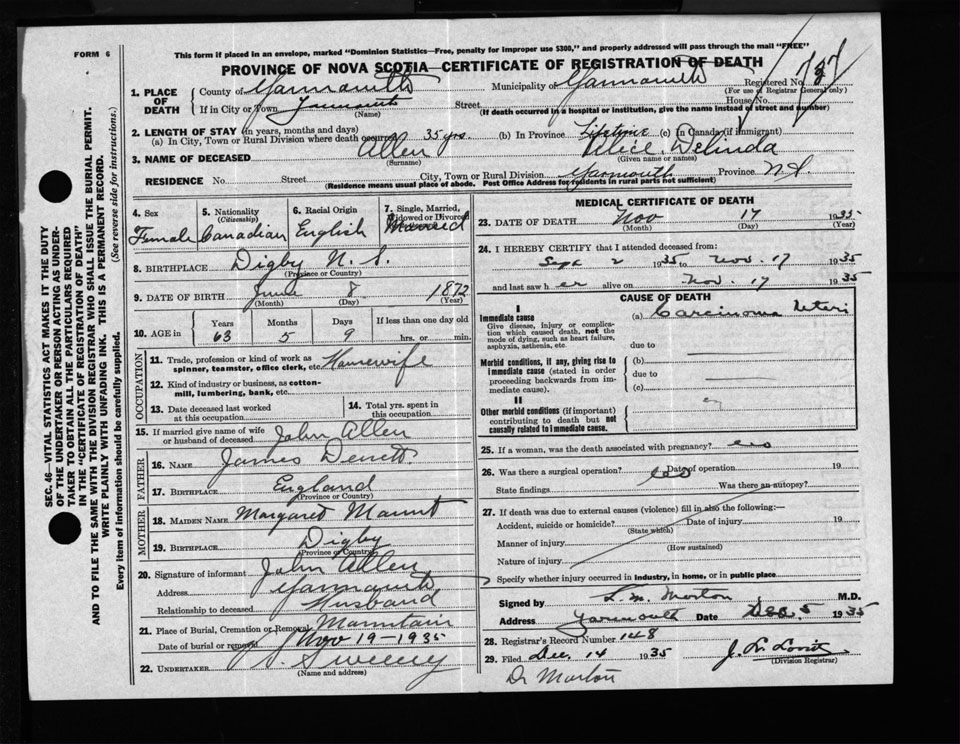 FORM 6
This form if placed in an envelope, marked "Dominion Statistics—Free, penalty for improper use $300," and properly addressed will pass through the mail "FREE"
PROVINCE OF NOVA SCOTIA—CERTIFICATE OF REGISTRATION OF DEATH
1. PLACE OF DEATH
County of Yarmouth Municipality of Yarmouth Registered No.
(For use of Registrar General only)
If in City or Town Yarmouth Street House No.
(Name) (If death occurred in a hospital or institution, give the name instead of street and number)
2. LENGTH OF STAY (in years, months and days)
(a) In City, Town or Rural Division where death occurred 35 yrs (b) In Province Lifetime (c) In Canada (if immigrant)
3. NAME OF DECEASED Allen Alice Delinda
(Surname) (Given name or names)
RESIDENCE No. Street City, Town or Rural Division Yarmouth Province N.S.
(Residence means usual place of abode. Post Office Address for residents in rural parts not sufficient)
4. Sex Female
5. Nationality (Citizenship) Canadian
6. Racial Origin English
7. Single, Married, Widowed or Divorced Married
8. BIRTHPLACE Digby N. S.
(Province or Country)
9. DATE OF BIRTH June 8 1872
(Month) (Day) (Year)
10. AGE in Years Months Days If less than one day old
63 5 9 hrs. or min.
OCCUPATION
11. Trade, profession or kind of work as spinner, teamster, office clerk, etc. Housewife
12. Kind of industry or business, as cotton-mill, lumbering, bank, etc.
13. Date deceased last worked at this occupation
14. Total yrs. spent in this occupation
15. If married give name of wife or husband of deceased John Allen
FATHER
16. NAME James
17. BIRTHPLACE England
(Province or Country)
MOTHER
18. MAIDEN NAME Margaret
19. BIRTHPLACE Digby
(Province or Country)
20. Signature of informant John Allen
Address Yarmouth
Relationship to deceased Husband
21. Place of Burial, Cremation or Removal Mountain
Date of burial or removal Nov 19-1935
22. UNDERTAKER Sweeny
(Name and address)
MEDICAL CERTIFICATE OF DEATH
23. DATE OF DEATH Nov 17 1935
(Month) (Day) (Year)
24. I HEREBY CERTIFY that I attended deceased from:
Sept 2 1935 to Nov. 17 1935
and last saw her alive on Nov. 17 1935
CAUSE OF DEATH
I
Immediate cause (a) Carcinoma Uteri
Give disease, injury or complication which caused death, not the mode of dying, such as heart failure, asphyxia, asthenia, etc.
due to
Morbid conditions, if any, giving rise to immediate cause (stated in order proceeding backwards from immediate cause).
(b)
due to
(c)
II
Other morbid conditions (if important) contributing to death but not causally related to immediate cause.
25. If a woman, was the death associated with pregnancy?
26. Was there a surgical operation? Date of operation 19
State findings Was there an autopsy?
27. If death was due to external causes (violence) fill in also the following:—
Accident, suicide or homicide? Date of injury 19
(State which)
Manner of injury
(How sustained)
Nature of injury
Specify whether injury occurred in industry, in home, or in public place
Signed by L. M. Morton M.D.
Address Yarmouth Date Dec. 5 1935
28. Registrar's Record Number 148
29. Filed Dec. 14 1935
(Division Registrar)
Dr Morton
SEC. 46—VITAL STATISTICS ACT MAKES IT THE DUTY
OF THE UNDERTAKER OR PERSON ACTING AS UNDER-
TAKER TO OBTAIN ALL THE PARTICULARS REQUIRED
IN THE "CERTIFICATE OF REGISTRATION OF DEATH"
AND TO FILE THE SAME WITH THE DIVISION REGISTRAR WHO SHALL ISSUE THE BURIAL PERMIT.
WRITE PLAINLY WITH UNFADING INK. THIS IS A PERMANENT RECORD.
Every item of information should be carefully supplied. (See reverse side for instructions.)